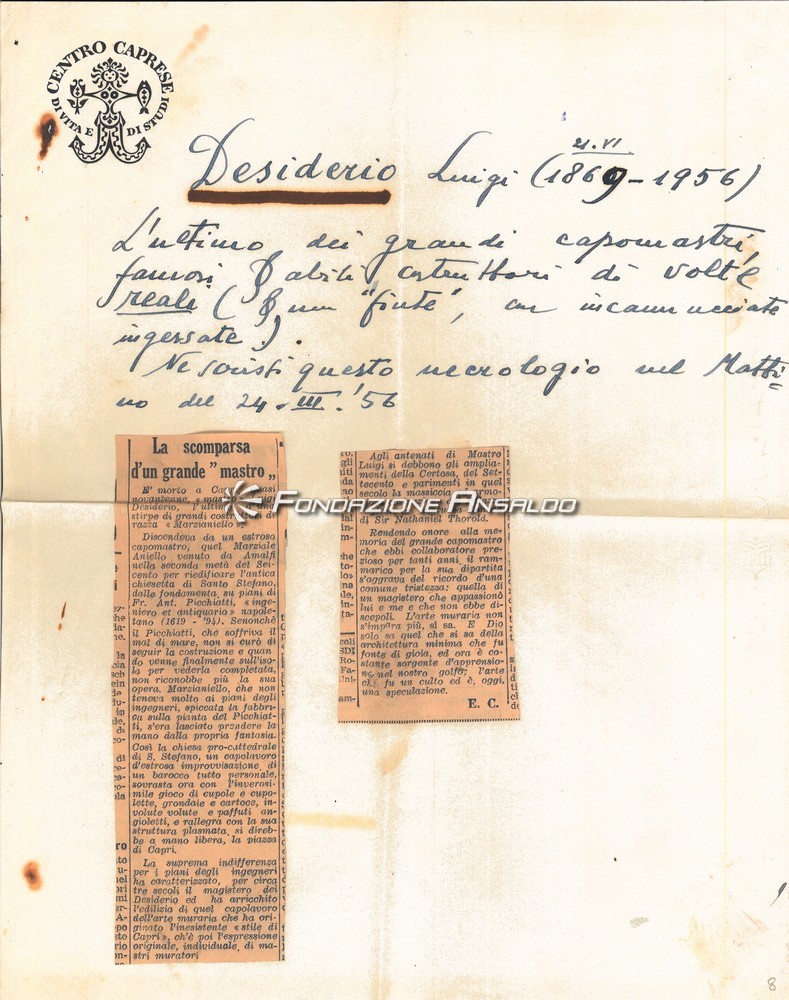 CENTRO CAPRESE
DI VITA E DI STUDI
21. VI
Desiderio Luigi (1869-1956)
L'ultimo dei grandi capomastri,
famosi abili costruttori di volte
reali ( non "finte", con incannucciate
ingessate).
Ne scrissi questo necrologio nel Matti=
no del 24. III. '56
La scomparsa
d'un grande "mastro„
E' morto a
novantenne,
Desiderio, l'ultim
stirpe di grandi
razza « Marzianiello ».
Discendeva da un estroso
capomastro, quel Marziale
Aniello venuto da Amalfi
nella seconda metà del Sei-
cento per riedificare l'antica
chiesetta di Santo Stefano,
dalle fondamenta, su piani di
Fr. Ant. Picchiatti, « inge-
niero et antiquario » napole-
tano (1619 - '94). Senonchè
il Picchiatti, che soffriva il
mal di mare, non si curò di
seguir la costruzione e quan
do venne finalmente sull'iso-
la per vederla completata,
non riconobbe più la sua
opera. Marzianiello, che non
teneva molto ai piani degli
ingegneri, spiccata la fabbri-
ca sulla pianta del Picchiat-
ti, s'era lasciato prendere la
mano dalla propria fantasia.
Così la chiesa pro-cattedrale
di S. Stefano, un capolavoro
d'estrosa improvvisazione, di
un barocco tutto personale,
sovrasta ora con l'inverosi-
mile gioco di cupole e cupo-
lette, grondaie e cartocc, in-
volute volute e paffuti an-
gioletti, e rallegra con la sua
struttura plasmata, si direb-
be a mano libera, la piazza
di Capri.
La suprema indifferenza
per i piani degli ingegneri
ha caratterizzato, per circa
tre secoli il magistero dei
Desiderio ed ha arricchito
l'edilizia di quel capolavoro
dell'arte muraria che ha ori-
ginato l'inesistente « stile di
Capri », ch'è poi l'espressione
originale, individuale, di ma-
stri muratori
Agli antenati di Mastro
Luigi si debbono gli amplia-
menti della Certosa, del Set-
tecento e parimenti in quel
secolo la massiccia
di Sir Nathaniel Thorold.
Rendendo onore alla me-
moria del grande capomastro
che ebbi collaboratore pre-
zioso per tanti anni, il ram-
marico per la sua dipartita
s'aggrava del ricordo d'una
comune tristezza: quella di
un magistero che appassionò
lui e me e che non ebbe di-
scepoli. L'arte muraria non
s'impara più, si sa. E Dio
solo sa quel che si sa della
architettura minima che fu
fonte di gioia, ed ora è co-
stante sorgente d'apprensio-
ne, nel nostro golfo; l'arte
che fu un culto ed è, oggi,
una speculazione.
E. C.
FONDAZIONE ANSALDO
8